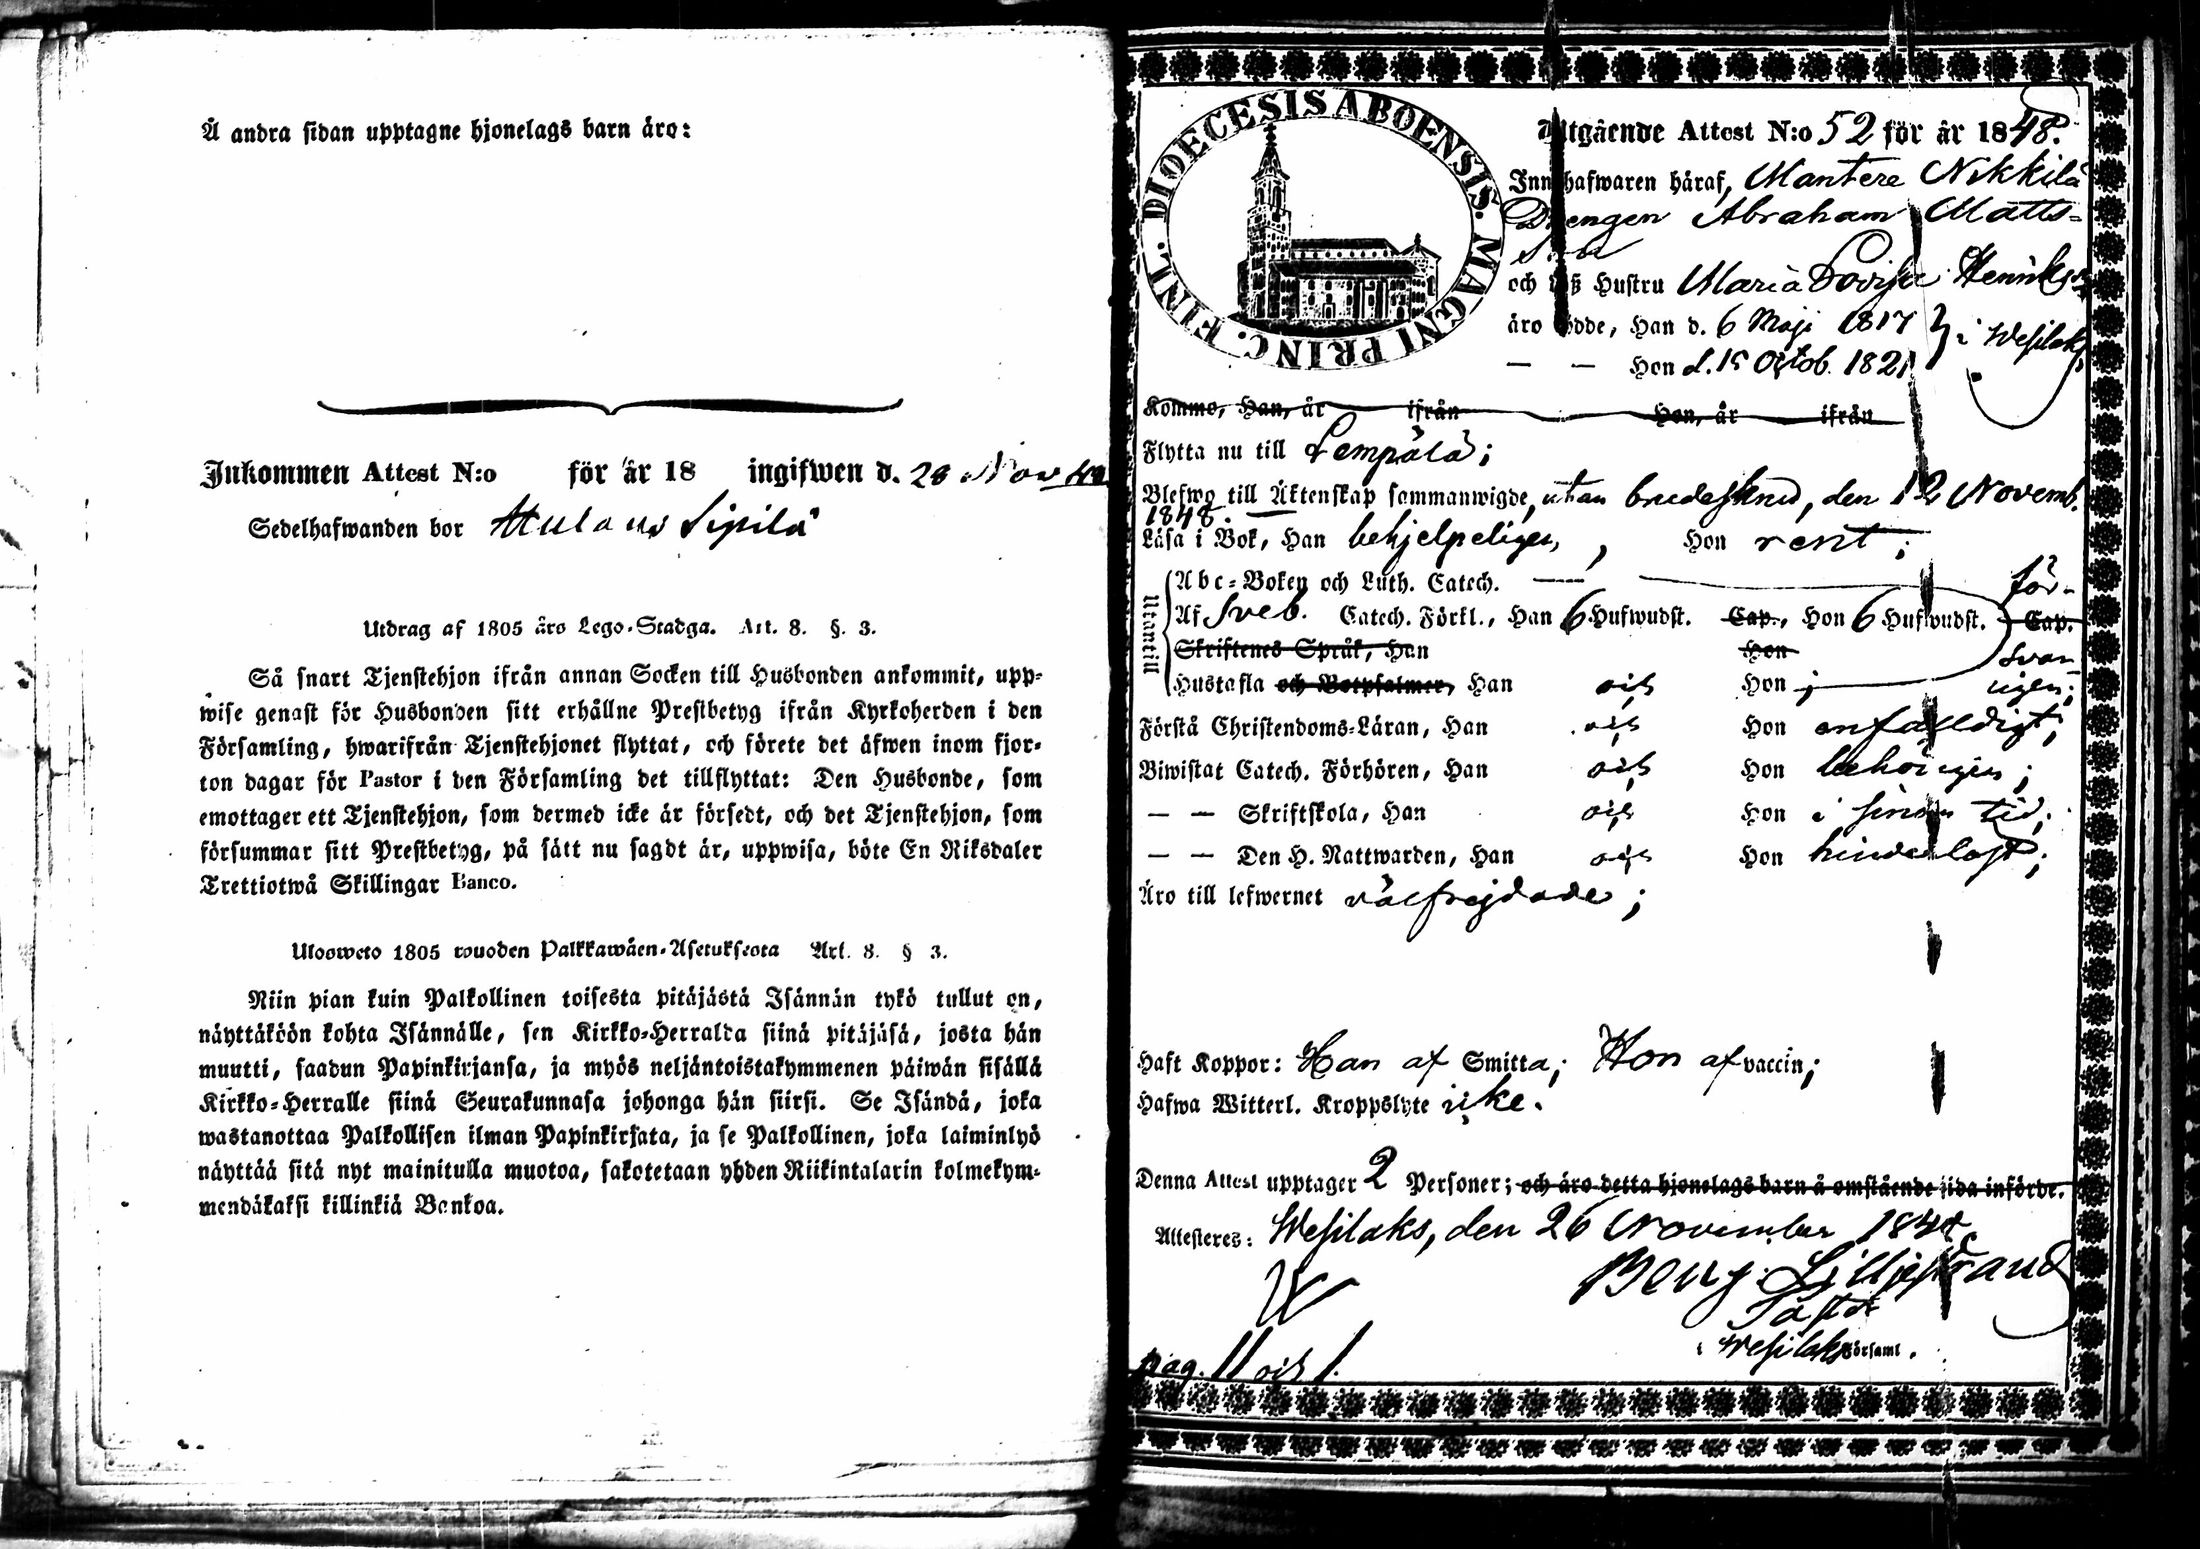 Å andra sidan upptagne hjonelags barn äro:
Inkommen Attest N:o för år 18 ingifwen d. 28 Nov 48
Sedelhafwanden bor Sipilä
Utdrag af 1805 års Lego-Stadga. Art. 8. §. 3.
Så snart Tjenstehjon ifrån annan Socken till Husbonden ankommit, upp-
wise genast för Husbonden sitt erhållne Prestbetyg ifrån Kyrkoherden i den
Församling, hwarifrån Tjenstehjonet flyttat, och förete det äfwen inom fjor-
ton dagar för Pastor i den Församling det tillflyttat: Den Husbonde, som
emottager ett Tjenstehjon, som dermed icke är försedt, och det Tjenstehjon, som
försummar sitt Prestbetyg, på sätt nu sagdt är, uppwisa, böte En Riksdaler
Trettiotwå Skillingar Banco.
Ulosweto 1805 wuoden Palkkawäen-Asetuksesta Art. 8. § 3.
Niin pian kuin Palkollinen toisesta pitäjästä Isännän tykö tullut on,
näyttäköön kohta Isännälle, sen Kirkko-Herralda siinä pitäjäsä, josta hän
muutti, saadun Papinkirjansa, ja myös neljäntoistakymmenen päiwän sisällä
Kirkko-Herralle siinä Seurakunnasa johonga hän siirsi. Se Isändä, joka
wastanottaa Palkollisen ilman Papinkirjata, ja se Palkollinen, joka laiminlyö
näyttää sitä nyt mainitulla muotoa, sakotetaan yhden Riikintalarin kolmekym-
mendäkaksi killinkiä Bankoa.
FINL. DIOECESIS ABOENSIS. MAGNI PRINC.
Utgående Attest N:o 52 för år 1848.
Innehafwaren häraf, Mantere Nikkilä
Drengen Abraham Matts-
son
och deß Hustru Maria Lovisa Henriksd.
äro födde, Han d. 6 Maji 1817 } i Wesilaks
— — Hon d. 15 Octob. 1821
Komme, Han, år ifrån Hon, år ifrån
Flytta nu till Lempälä;
Blefwo till Äktenskap sammanwigde, utan brudeskrud, den 12 Novemb.
1848.
Läsa i Bok, Han behjelpeligen, Hon rent;
Utantill
Abc-Boken och Luth. Catech. — för-
Af Sveb. Catech. Förkl., Han 6 Hufwudst. Cap., Hon 6 Hufwudst. Cap.
Skriftenes Språk, Han Hon svar-
Hustafla och Botpsalmer, Han och Hon ; ligen;
Förstå Christendoms-Läran, Han och Hon enfalldigt;
Biwistat Catech. Förhören, Han och Hon behörigen;
— — Skriftskola, Han och Hon i sinom tid;
— — Den H. Nattwarden, Han och Hon
Äro till lefwernet välfrejdade;
Haft Koppor: Han af Smitta; Hon af vaccin;
Hafwa Witterl. Kroppslyte icke.
Denna Attest upptager 2 Personer; och äro detta hjonelags barn å omstående sida införde.
Attesteres: Wesilaks, den 26 November 1848.
Benj. Lilljestrand
Pastor
i Wesilaks Församl.
pag. 11 och 1.